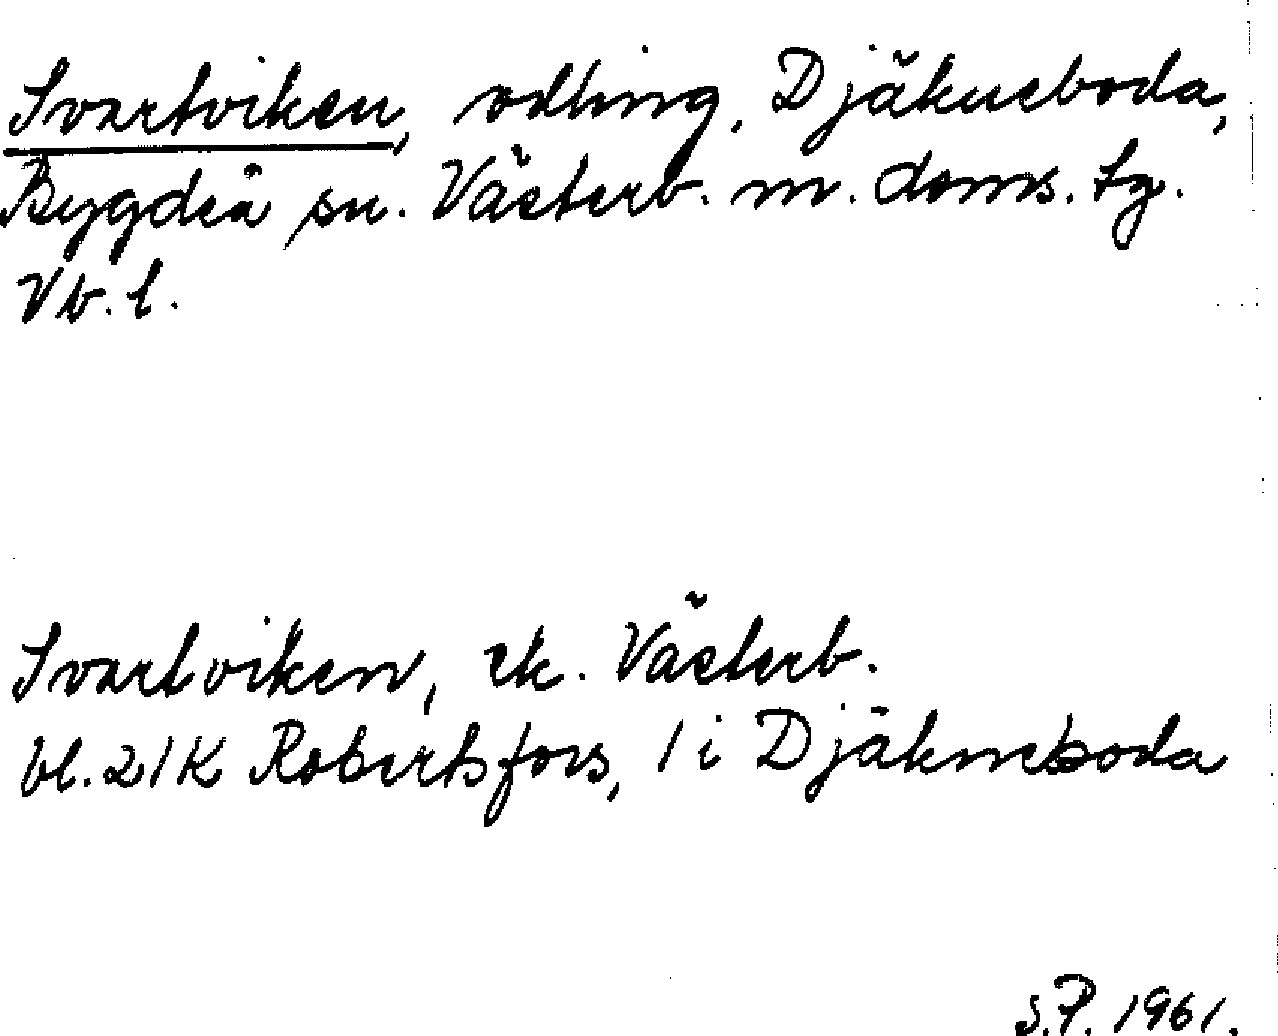 Svartviken, odling, Djäkneboda,
Bygdeå sn. Västerb. m. doms. tg.
Vb. l.
Svartviken, ek. Västerb.
bl. 21K Robertsfors, 1 i Djäkneboda
S.P. 1961.